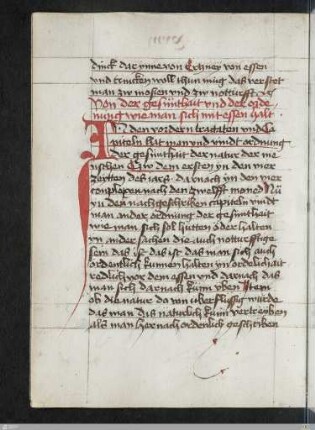 dinck dar ynne von Ertzney von essen
und trincken woll thun mug das verstet
man zw mossen und zw notturfft
Von der gesuntheit vnd der orde
nung wie man sich mit essen halt
In den vordern tragaten und Ca
piteln hat man vnd vindt ordnung
der gesuntheit der natur der me
nschen Czw dem ersten yn den vier
zeitten des iars darnach yn den vier
complexen nach den zwelff moned Nu
yn den nachgeschriben capiteln vindt
man ander ordnung der gesuntheit
wie man sich sol hutten oder halten
yn ander sachen die auch notturfftige
sein das ist das man sich auch
ordentlich kunn halten yn ordelichait
redlich vor dem essen und darnach das
man sich darnach kunn vben Item
ob die natur do von vberflussig wurde
das man das naturlich kunn vertreyben
als man hernach ordenlich geschriben